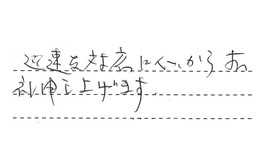 迅速な対応に心からお
礼申し上げます。